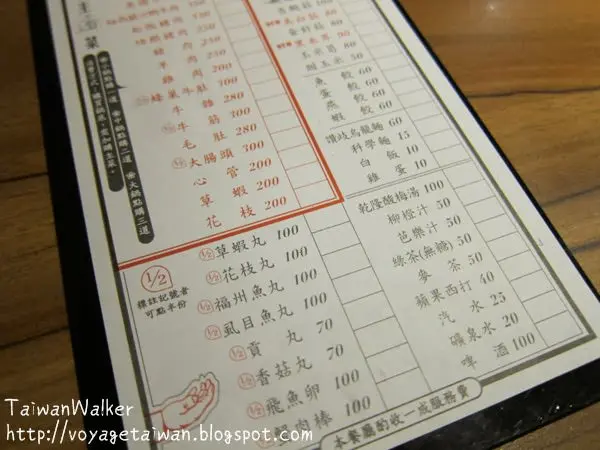 主
菜
豬肉 250
羊肉 250
雞肉 200
蜂巢牛肚 300
牛雜 280
1/2 牛筋 300
毛肚 280
1/2 大腸頭 300
心管 200
草蝦 200
花枝 200
1/2
標註記號者
可點半份
1/2 草蝦丸 100
1/2 花枝丸 100
1/2 福州魚丸 100
1/2 虱目魚丸 100
1/2 貢丸 70
1/2 香菇丸 70
1/2 飛魚卵 100
肉棒 100
金針菇 80
90
玉米筍 80
甜玉米 50
魚餃 60
蛋餃 60
燕餃 60
蝦餃 60
讚岐烏龍麵 60
科學麵 15
白飯 10
雞蛋 10
乾隆酸梅湯 100
柳橙汁 50
芭樂汁 50
綠茶(無糖) 50
麥茶 50
蘋果西打 40
汽水 25
礦泉水 20
啤酒 100
本餐廳酌收一成服務費
TaiwanWalker
http://voyagetaiwan.blogspot.com/